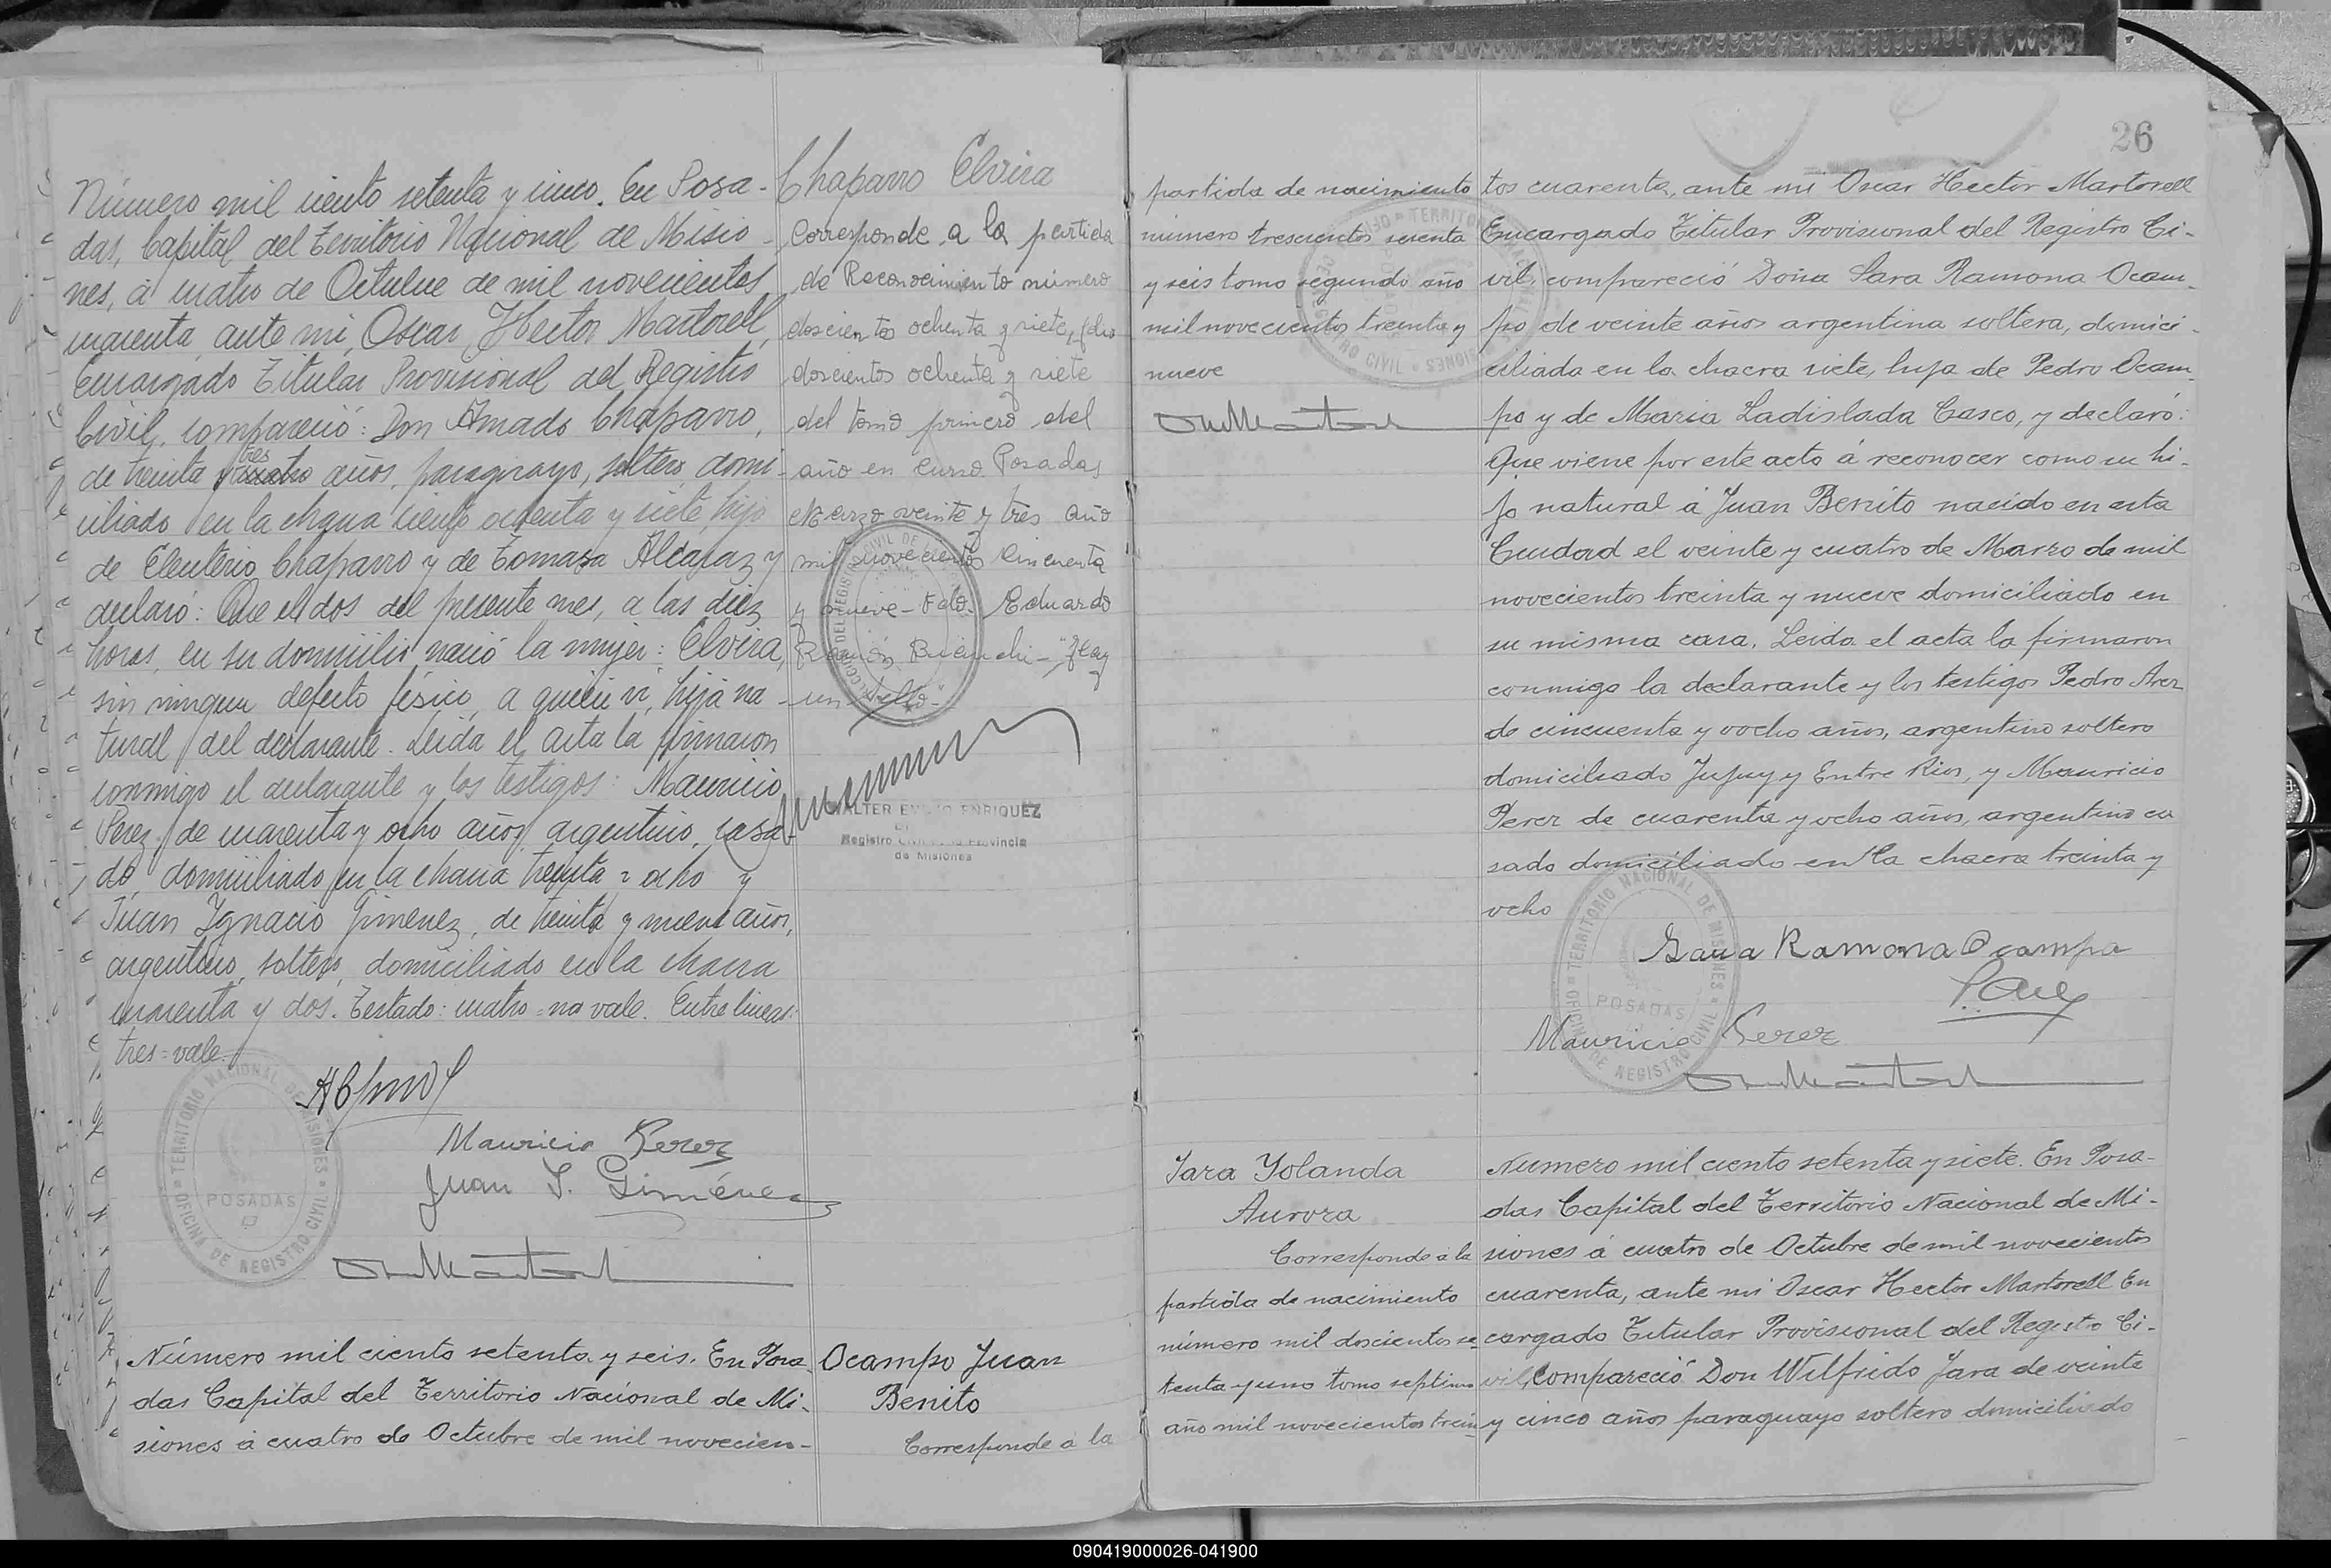 Número mil ciento setenta y cinco. En Posa-
das, Capital del Territorio Nacional de Misio-
nes, á cuatro de Octubre de mil novecientos
cuarenta, ante mi, Oscar Hector Martorell,
Encargado Titular Provisional del Registro
Civil, compareció: Don Amado Chaparro,
de treinta y cuatro tres años, paraguayo, soltero, domi-
ciliado en la chacra ciento ochenta y siete, hijo
de Eleuterio Chaparro y de Tomasa Alcaraz y
declaró: Que el dos del presente mes, a las diez
horas, en su domicilio nació la mujer: Elvira,
sin ningun defecto físico, a quien vi, hija na-
tural del declarante. Leida el acta la firmaron
conmigo el declarante y los testigos: Mauricio
Perez, de cuarenta y ocho años, argentino, casa-
do, domiciliado en la chacra treinta y ocho y
Juan Ignacio Gimenez, de treinta y nueve años,
argentino, soltero, domiciliado en la chacra
cuarenta y dos. Testado: cuatro = no vale. Entre lineas:
tres = vale.
Mauricio Perez
Juan I. Giménez
TERRITORIO NACIONAL DE MISIONES
POSADAS
OFICINA DE REGISTRO CIVIL
Chaparro Elvira
Corresponde a la partida
de Reconocimiento número
doscientos ochenta y siete, folio
doscientos ochenta y siete
del tomo primero del
año en curso. Posadas
Marzo veinte y tres año
mil novecientos cincuenta
y nueve - Fdo. Eduardo
Ramón Bianchi - "Hay
un sello" -
WALTER EMILIO ENRIQUEZ
Registro Civil de la Provincia
de Misiones
Número mil ciento setenta y seis. En Posa-
das Capital del Territorio Nacional de Mi-
siones á cuatro de Octubre de mil novecien-
Ocampo Juan
Benito
Corresponde a la
partida de nacimiento
número trescientos sesenta
y seis tomo segundo año
mil novecientos treinta y
nueve
26
tos cuarenta, ante mi Oscar Hector Martorell
Encargado Titular Provisional del Registro Ci-
vil, compareció Doña Sara Ramona Ocam-
po de veinte años argentina soltera, domici-
ciliada en la chacra siete, hija de Pedro Ocam-
po y de Maria Ladislada Casco, y declaró:
Que viene por este acto á reconocer como su hi-
jo natural á Juan Benito nacido en esta
Ciudad el veinte y cuatro de Marzo de mil
novecientos treinta y nueve domiciliado en
su misma casa. Leida el acta la firmaron
conmigo la declarante y los testigos Pedro Arez
de cincuenta y ocho años, argentino soltero
domiciliado Jujuy y Entre Rios, y Mauricio
Perez de cuarenta y ocho años, argentino ca
sado domiciliado en la chacra treinta y
ocho
Sara Ramona Ocampo
Mauricio Perez
TERRITORIO NACIONAL DE MISIONES
POSADAS
OFICINA DE REGISTRO CIVIL
Jara Yolanda
Aurora
Corresponde a la
partida de nacimiento
número mil doscientos se-
tenta y uno tomo septimo
año mil novecientos trein-
Numero mil ciento setenta y siete. En Posa-
das Capital del Territorio Nacional de Mi-
siones á cuatro de Octubre de mil novecientos
cuarenta, ante mi Oscar Hector Martorell En
cargado Titular Provisional del Registro Ci-
vil, Compareció Don Wilfrido Jara de veinte
y cinco años paraguayo soltero domiciliado
090419000026-041900